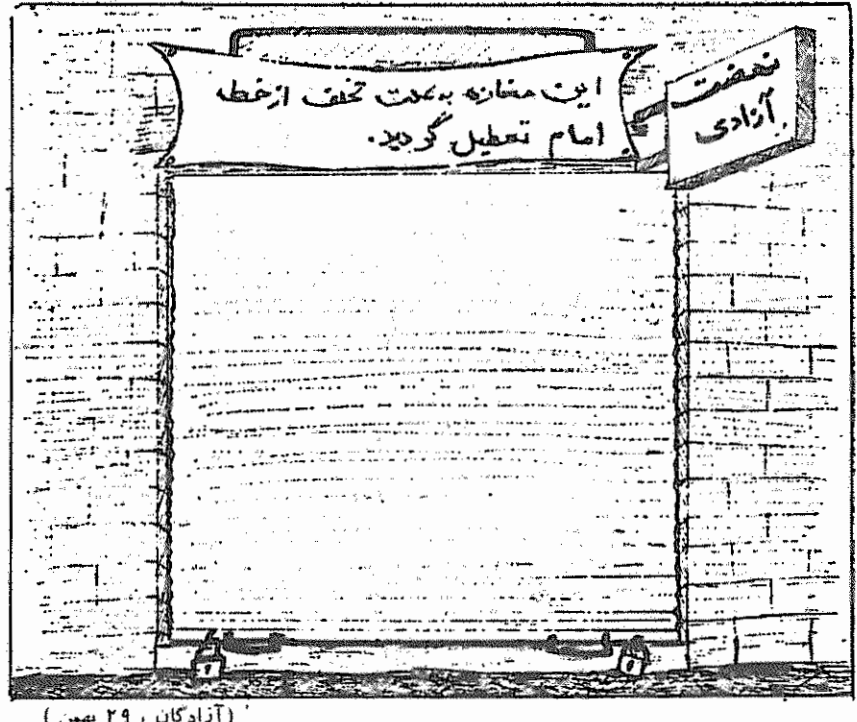 این مغازه به علت تخلف از خط
امام تعطیل گردید.
نهضت
آزادی
(آزادگان ، ۲۹ بهمن)